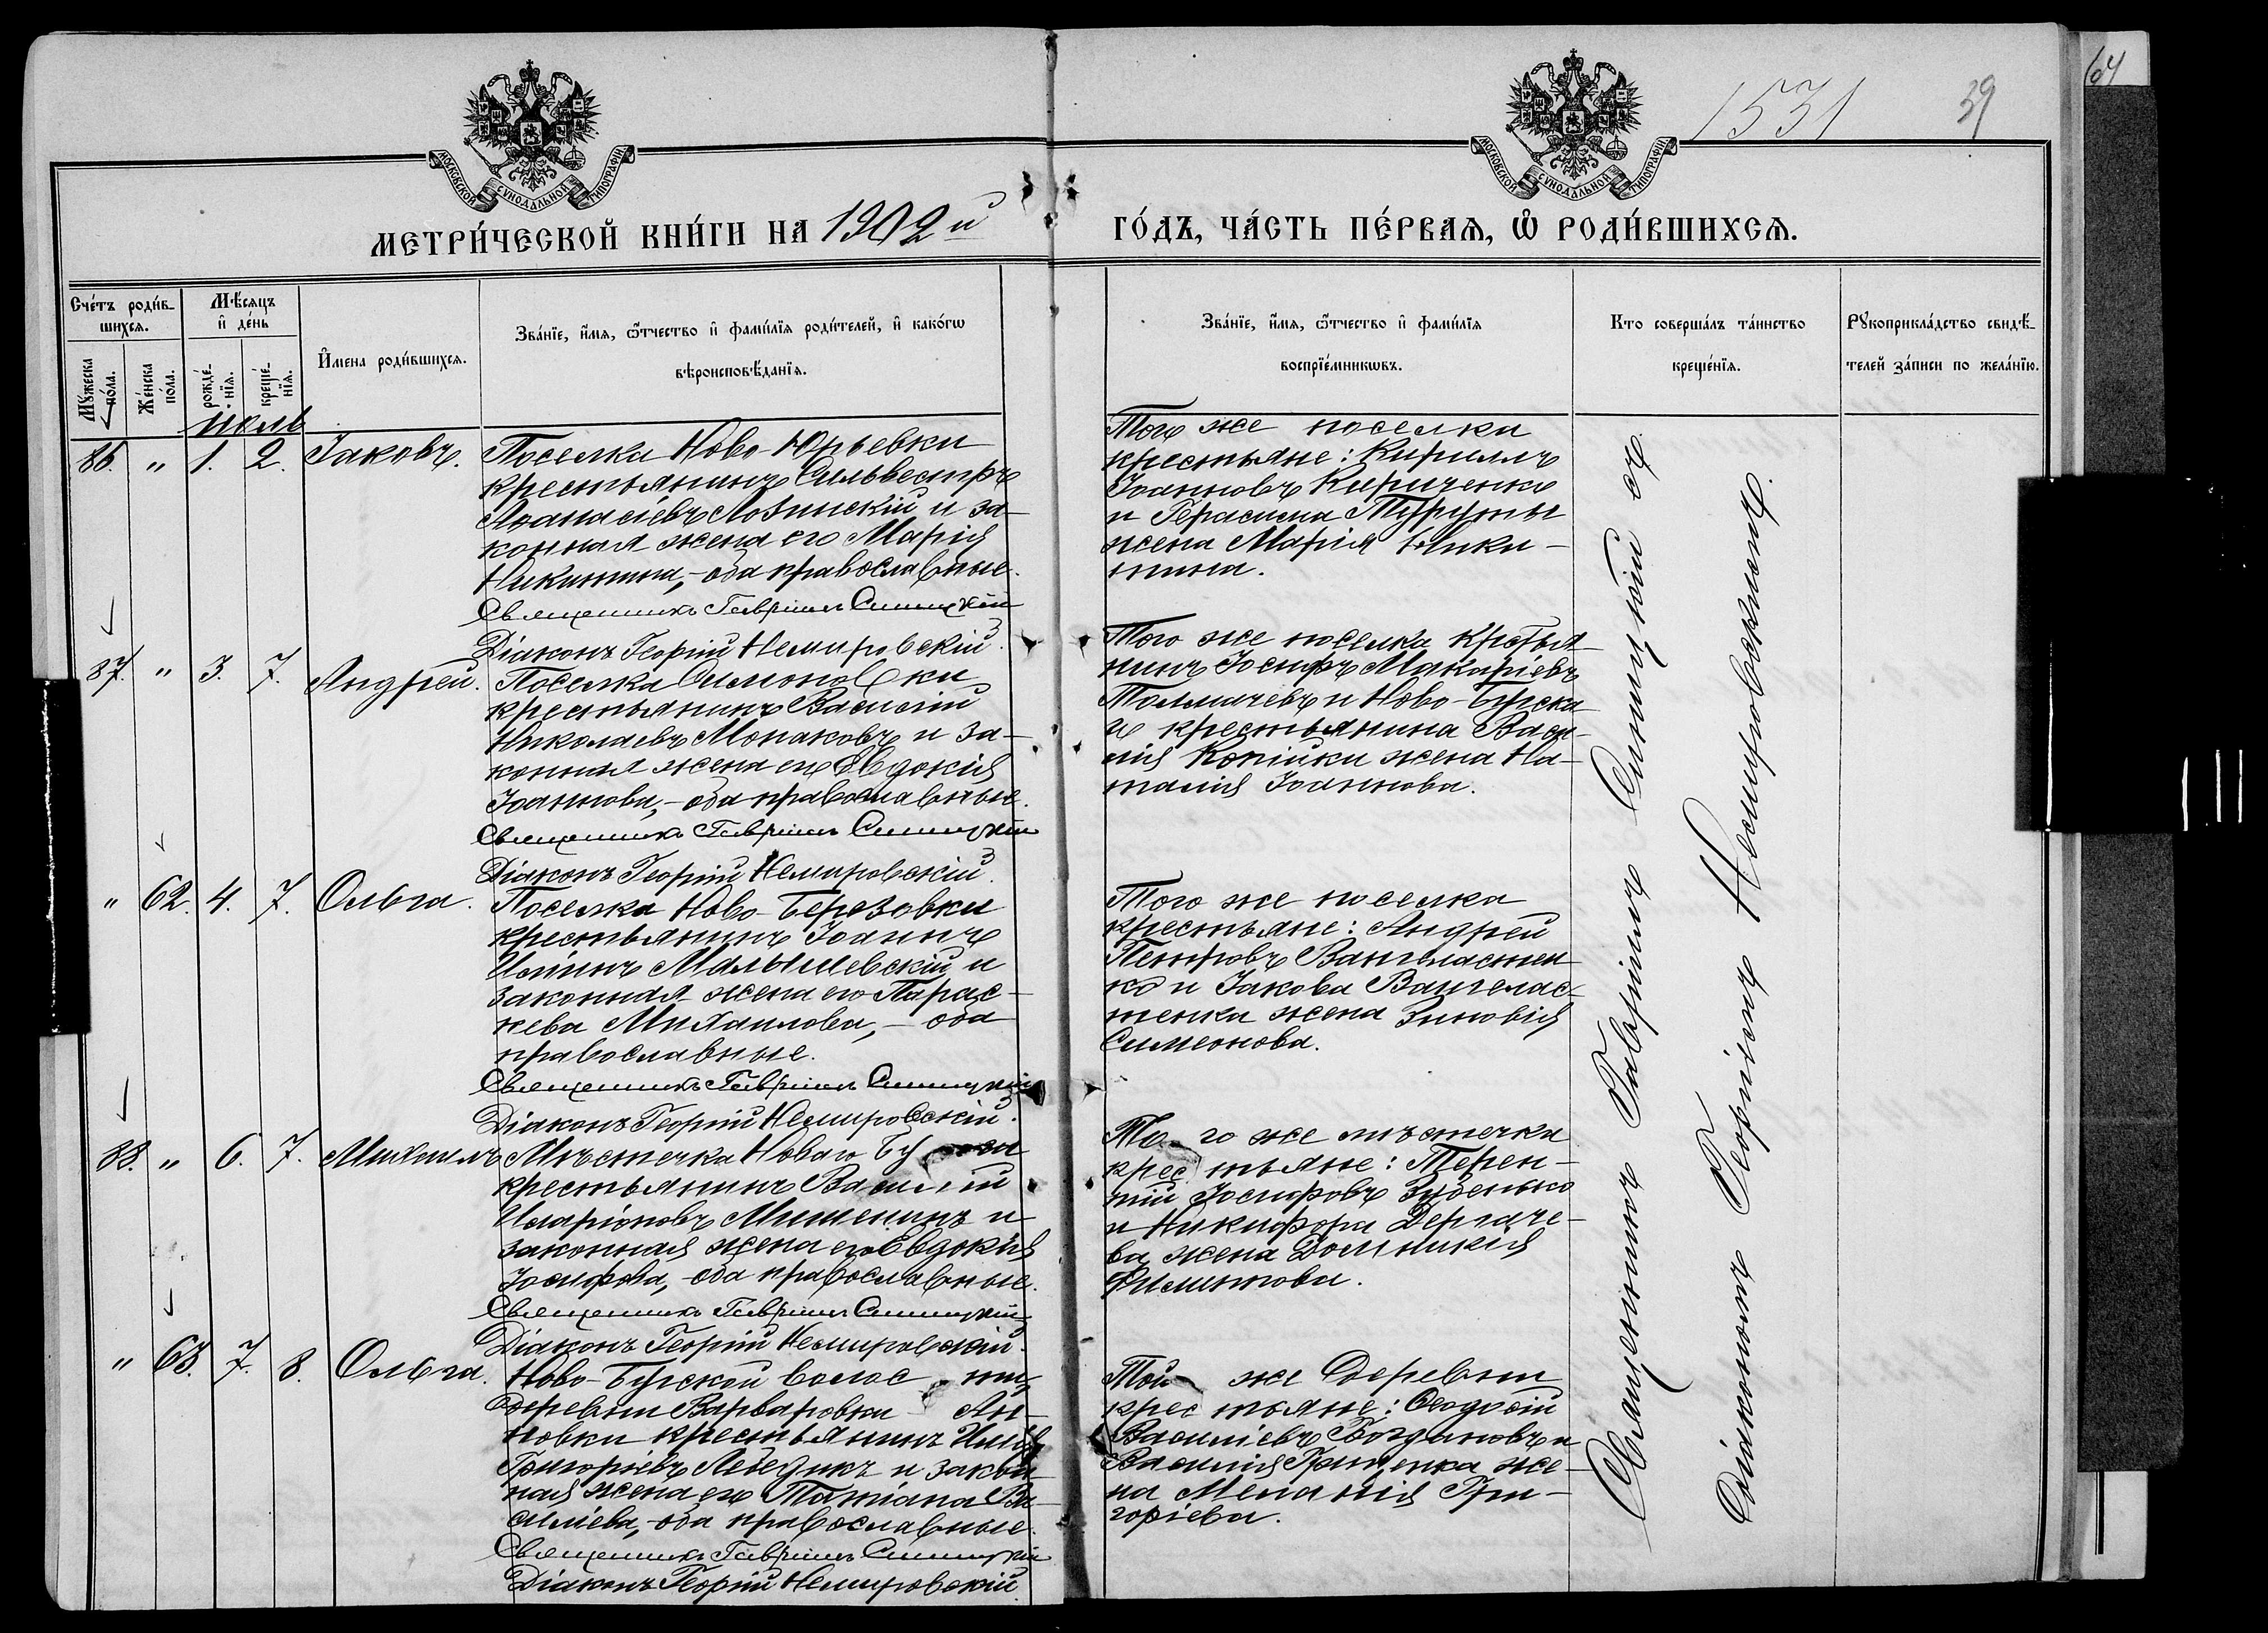 1531
39
64
МОСКОВСКОЙ СУНОДАЛЬНОЙ ТИПОГРАФІИ
МОСКОВСКОЙ СУНОДАЛЬНОЙ ТИПОГРАФІИ
МЕТРИ́ЧЕСКОЙ КНИ́ГИ НА 1902й
ГО́ДЪ, ЧА́СТЬ ПЕ́РВАЯ, Ѡ РОДИ́ВШИХСЯ.
Сче́тъ роди́в-
шихся.
Мѣ́сяцъ
и҆ де́нь
Мꙋ́жеска
по́ла.
Же́нска
по́ла.
рожде́-
нїя.
креще́-
нїя.
И҆мена роди́вшихся.
Зва́нїе, и҆́мя, ѻ҆́тчество и҆ фами́лїя роди́телей, и҆ како́гѡ
вѣроисповѣ́данїя.
Зва́нїе, и҆́мя, ѻ҆́тчество и҆ фами́лїя
воспрїе́мникѡвъ.
Кто соверша́лъ та́инство
креще́нїя.
Рꙋкоприкла́дство свидѣ́-
телей за́писи по жела́нїю.
июль
86. " 1. 2. Іаковъ.
Поселка Ново-Юрьевки
крестьянинъ Сильвестръ
Аѳанасіевъ Лозинскій и за-
конная жена его Марія
Никитина, - оба православные.
Священникъ Гавріилъ Синицкій
Діаконъ Георгій Немировскій.
Того же поселка
крестьяне: Кириллъ
Іоанновъ Кириченко
и Герасима Туруты
жена Марія Ники-
тина.
87. " 3. 7. Андрей.
Поселка Симоновки
крестьянинъ Василій
Николаевъ Монаковъ и за-
конная жена его Евдокія
Іоаннова, - оба православные.
Священникъ Гавріилъ Синицкій
Діаконъ Георгій Немировскій.
Того же поселка крестья-
нинъ Іосифъ Макаріевъ
Толмачевъ и Ново-Бугска-
го крестьянина Васи-
лія Копійки жена На-
талія Іоаннова.
" 62. 4. 7. Ольга.
Поселка Ново-Березовки
крестьянинъ Іоаннъ
Иліинъ Малышевскій и
законная жена его Парас-
кева Михаилова, - оба
православные.
Священникъ Гавріилъ Синицкій
Діаконъ Георгій Немировскій.
Того же поселка
крестьяне: Андрей
Петровъ Вангеластен-
ко и Іакова Вангелас-
тенка жена Зиновія
Симеонова.
88. " 6. 7. Михаилъ
Мѣстечка Новаго Буга
крестьянинъ Василій
Иларіоновъ Мишенинъ и
законная жена его Евдокія
Іосифова, - оба православные.
Священникъ Гавріилъ Синицкій
Діаконъ Георгій Немировскій.
Того же мѣстечка
крестьяне: Терен-
тій Іосифовъ Зубенько
и Никифора Дергаче-
ва жена Домникія
Филиппова.
" 63. 7. 8. Ольга.
Ново-Бугской волости,
деревни Варваровки Ан-
новки крестьянинъ Илія
Григоріевъ Лебедикъ и закон-
ная жена его Татіана Ва-
силіева, - оба православные.
Священникъ Гавріилъ Синицкій
Діаконъ Георгій Немировскій
Той же деревни
крестьяне: Ѳеодосій
Василіевъ Богдановъ и
Василія Гриценка же-
на Меланія Гри-
горіева.
Священникъ Гавріилъ Синицкій съ
Діакономъ Георгіемъ Немировскимъ.